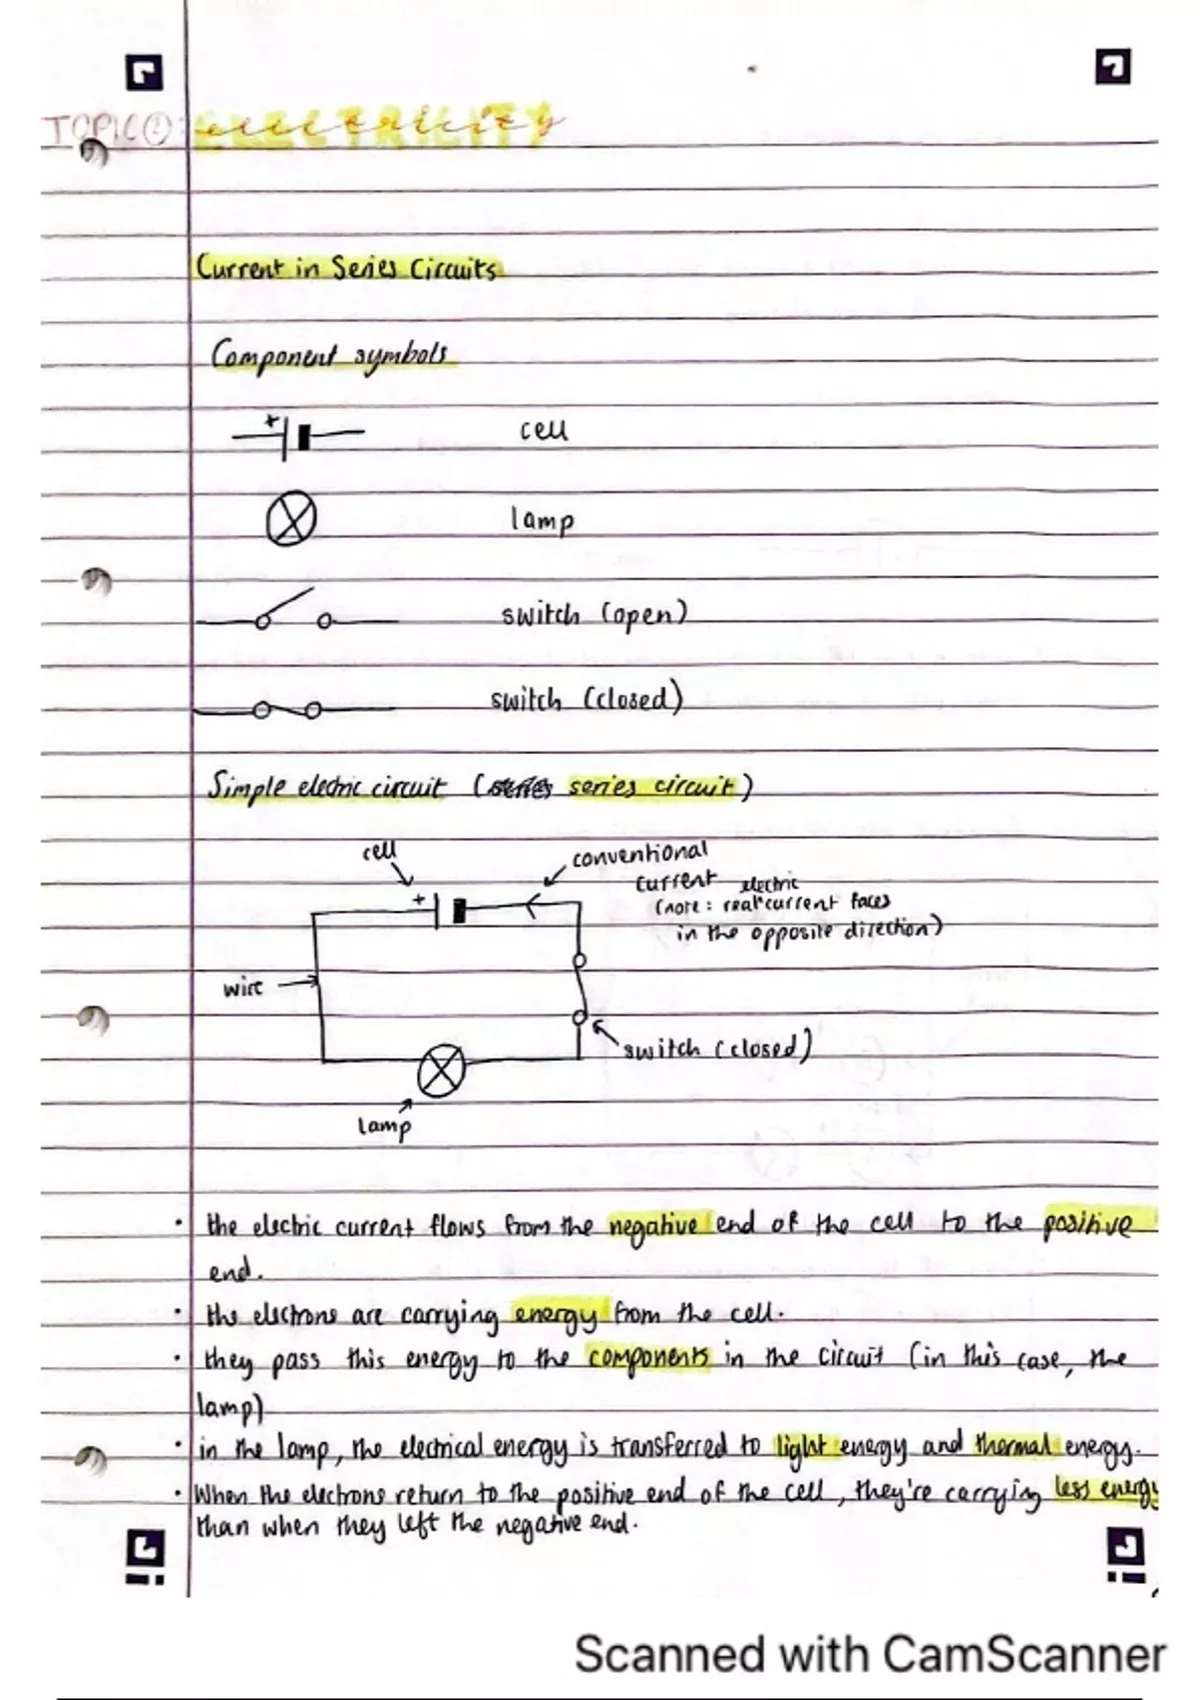 TOPIC 2: ELECTRICITY
Current in Series Circuits
Component symbols
+
cell
lamp
switch (open)
switch (closed)
Simple electric circuit (series series circuit)
cell
conventional
current
electric
(note: real current faces
in the opposite direction)
+
wire
switch (closed)
lamp
• the electric current flows from the negative end of the cell to the positive
end.
• the electrons are carrying energy from the cell.
• they pass this energy to the components in the circuit (in this case, the
lamp)
• in the lamp, the electrical energy is transferred to light energy and thermal energy.
• When the electrons return to the positive end of the cell, they're carrying less energy
than when they left the negative end.
Scanned with CamScanner